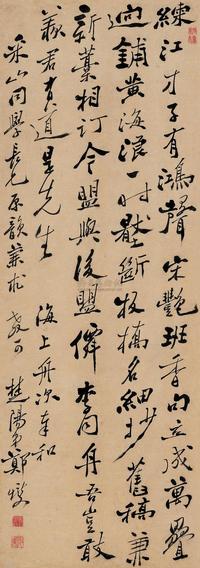 練江才子有鴻聲宋艷班香句立成萬疊
迴鋪黃海浪一時斷板橋名細抄舊稿兼
新藁相訂今盟與後盟李同舟吾豈敢
羨君有道是先生 海上舟次奉和
采山同學長兄原韻兼求 教可 楚陽弟鄭燮